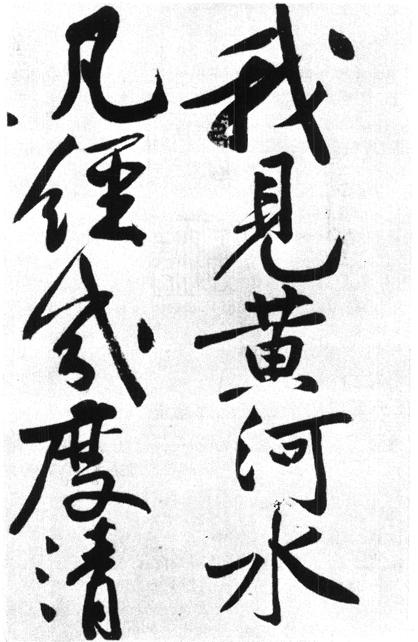 我見黄河水
凡經幾度清